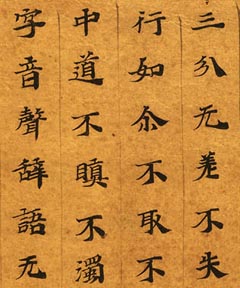 三分无差不失
行如尒不取不
中道不瞋不濁
字音聲辭語无